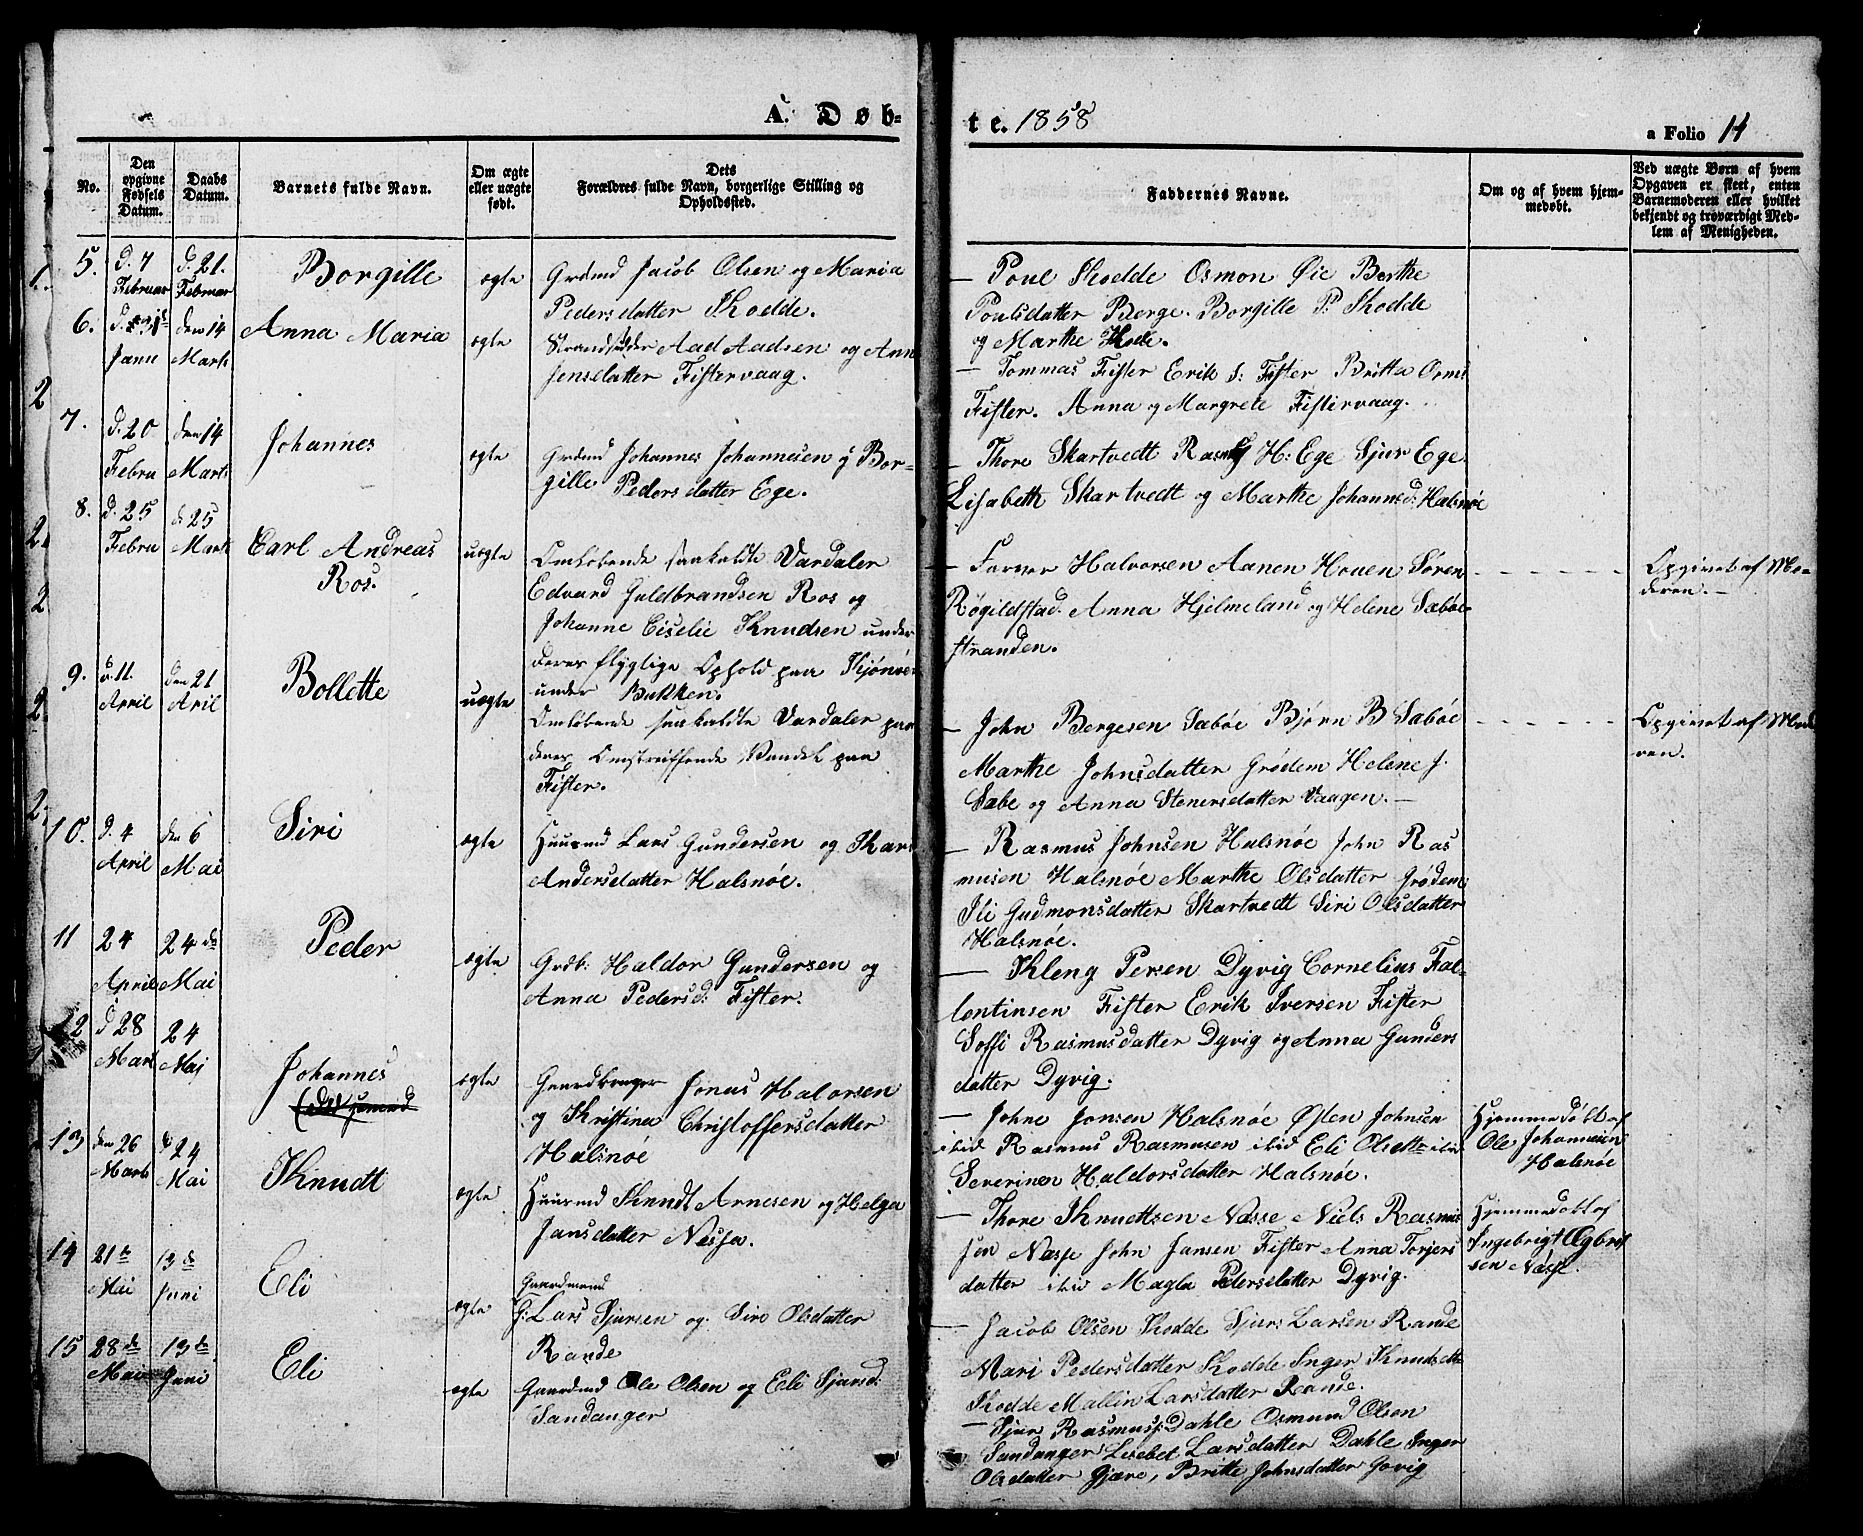 A. Døb-
No.
Den opgivne Fødsels Datum.
Daabs Datum.
Barnets fulde Navn.
Om ægte eller uægte født.
Dets Forældres fulde Navn, borgerlige Stilling og Opholdssted.
5.
d. 7
Februar
d. 21.
Februar
Borgille
ægte
Grdmd Jacob Olsen og Maria
Pedersdatter Skodde.
6.
Janu
den 14
Marts
Anna Maria
ægte
Strandsidder Aad Aadsen og Ann
Jensdatter Fistervaag.
7.
d. 20
Febru
den 14
Marts
Johannes
ægte
Grdmd Johannes Johannesen og Bor-
gille Pedersdatter Ege.
8.
d. 25
Febru
d 25
Marts
Carl Andreas
Ros.
uægte
Omløbende saakaldte Vardaler
Edvard Guldbrandsen Ros og
Johanne Eiselie Knudsen under
deres flygtige Ophold paa
under Bukken.
9.
d. 11.
April
den 21
Aril
Bollette
uægte
Omløbende saakaldte Vardaler paa
deres Omstreiffende Vandel paa
Fister.
10.
d. 4
April
den 6
Mai
Siri
ægte
Huusmd Lars Gundersen og Kari
Andersdatter Halsnøe.
11
24
April
24 de
Mai
Peder
ægte
Grdb: Haldor Gundersen og
Anna Pedersd: Fister.
12
d 28
Mart
24
Mai
Johannes
ægte
Gaardbruger Jonas Halorsen
og Kristina Christoffersdatter
Halsnøe
13
den 26
Marts
d 24
Mai
Knudt
ægte
Huusmd Knudt Arnesen og Helga
Jansdatter Nessa.
14
21 de
Mai
13 de
Juni
Eli
ægte
Gaardmand
G: Lars Sjursen og Siri Olsdatter
Rande
15
28 de
Mai
13 de
Juni
Eli
ægte
Gaardmd Ole Olsen og Eli Sjursd:
Sandanger
te. 1858
a Folio 14
Faddernes Navne.
Om og af hvem hjemmedøbt.
Ved uægte Børn af hvem Opgaven er skeet, enten Barnemoderen eller hvilket bekjendt og troværdigt Medlem af Menigheden.
— Poul Skodde Osmon Øie Berthe
Poulsdatter Berge. Borgille P. Skodde
og Marthe
— Tommas Fister Erik S: Fister Britta Orms
Fister. Anna og Margrete Fistervaag.
— Thore Skartvedt H. Ege Sjur Ege
Lisabeth Skartvedt og Marthe Johannesd: Halsnøe
— Farner Halvorsen Aanen Houen Søren
Røgildstad. Anna Hjelmeland og Helene Sæbøe-
stranden.
Opgivet af Mo-
deren. —
— John Bergesen Sæbøe Bjørn B Sæbøe
Marthe Johnsdatter Grødem Helene J.
Sæbe og Anna Stenersdatter Vaagen. —
Opgivet af Mode
ren.
— Rasmus Johnsen Halsnøe John Ras
musen Halsnøe Marthe Olsdatter Grødem
Ili Gudmonsdatter Skartvedt Siri Olsdatter
Halsnøe.
— Kleng Persen Dyvig Cornelius Fal-
lentinsen Fister Erik Iversen Fister
Soffi Rasmusdatter Dyvig og Anna Gunders
datter Dyvig.
— Johne Jonsen Halsnøe Østen Johnsen
ibid Rasmus Rasmusen ibid Eli Olsdtt ibid
Severinen Haldorsdatter Halsnøe.
Hjemmedøbt af
Ole Johannesen
Halsnøe
— Thore Knudtsen Næsse Niels Rasmus
sen Næsse John Jansen Fister Anna Torjers
datter ibid Magla Pedersdatter Dyvig.
Hjemmedøbt af
Ingebrigt
sen Næsse.
— Jacob Olsen Skodde Sjur Larsen Rande
Mari Pedersdatter Skodde Inger Knudsdtt
Skodde Mallin Larsdatter Rande.
— Sjur Rasmuss. Dahle Osmund Olsen
Sandanger Lisebet Larsdatter Dahle Inger
Olsdatter Gjære, Britte Johnsdatter Govig